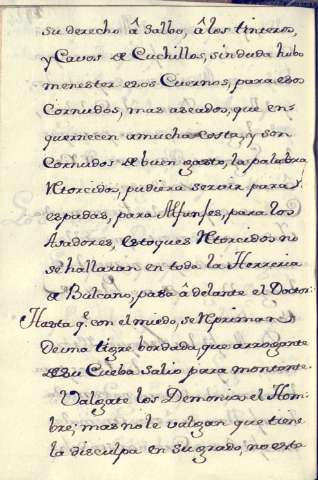 su derecho â salbo, â los tinteros,
y Cavos de Cuchillos, sin duda hubo
menester esos Cuernos, para esos
Cornudos, mas aseados, que en
guernecen a mucha costa, y son
cornudos de buen gasto, la palabra
Retorcidos, pudiera servir para
espadas, para Alfanjes, para los
Asadores, estoques Retorcidos no
se hallaran en toda la Herreria
de Balcano, pasa â delante el Doctor.
Hasta q.e con el miedo, se Repriman
De una tigre bordada, que arrogante
de su Cueba salio para montante.
Valgate los Demonios el Hom-
bre; mas no le valgan que tiene
la disculpa en su grado, no este